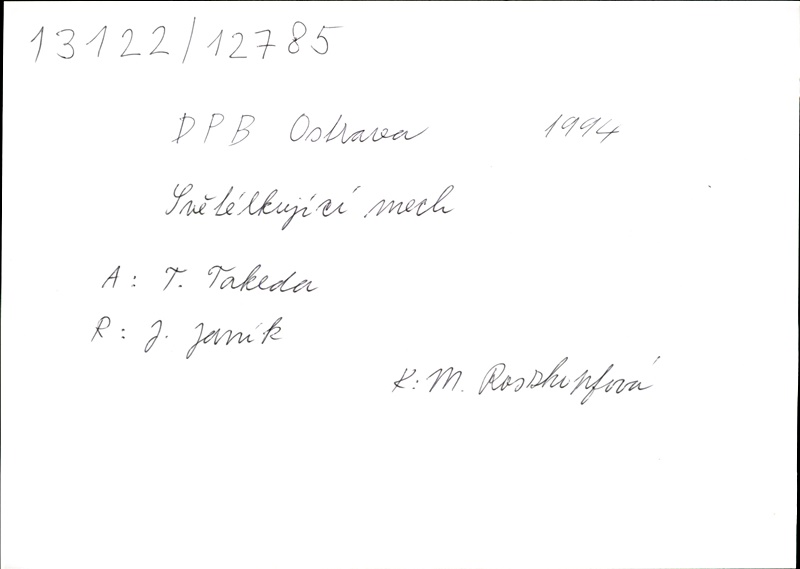 13122/12785
DPB Ostrava 1994
Světélkující mech
A: T. Takeda
R: J. Janík
K: M. Roszkopfová